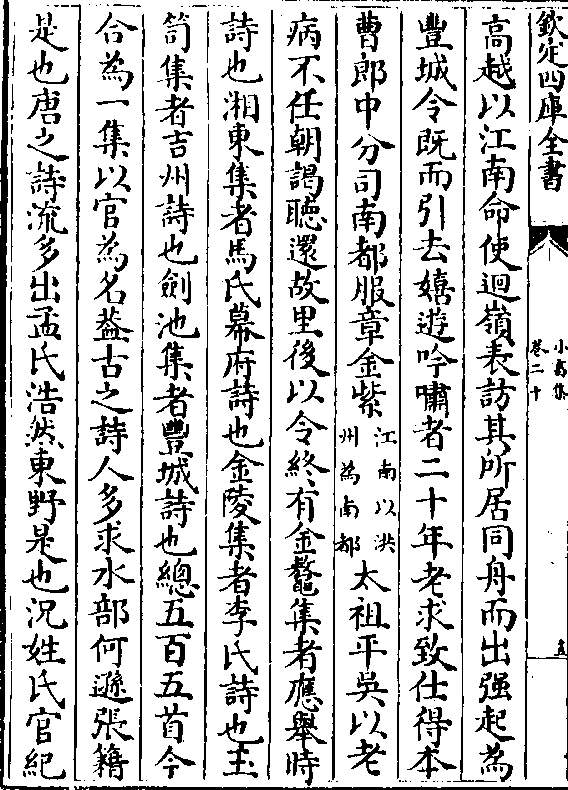 欽定四庫全書
小畜集
卷二十
五
高越以江南命使迴嶺表訪其所居同舟而出强起為
豐城令既而引去嬉遊吟嘯者二十年老求致仕得本
曹郎中分司南都服章金紫江南以洪州為南都太祖平吳以老
病不任朝謁聽還故里後以令終有金鼇集者應舉時
詩也湘東集者馬氏幕府詩也金陵集者李氏詩也玉
笥集者吉州詩也劍池集者豐城詩也總五百五首今
合為一集以官為名葢古之詩人多求水部何遜張籍
是也唐之詩流多出孟氏浩然東野是也況姓氏官紀